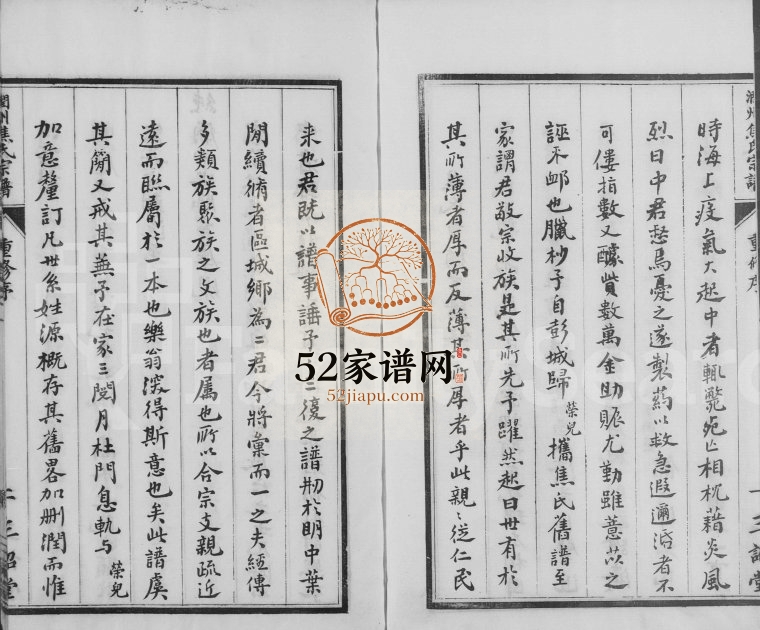 時海上疫氣大起中者輒斃死亡相枕藉炎風
烈日中君愁焉憂之遂製藥以救急遐邇活者不
可僂指數又醵貲數萬金助賑尤勤雖薏苡之
誣不卹也臘杪予自彭城歸榮兒攜焦氏舊譜至
家謂君敬宗收族是其所先予躍然起曰世有於
其所薄者厚而反薄其所厚者乎此親〻從仁民
来也君既以譜事諈予二復之譜刱於明中葉
閒續脩者區城鄉為二君今將彙而一之夫經傳
多類族聚族之文族也者屬也所以合宗支親疏近
遠而聯屬於一本也樂翁深得斯意也矣此譜虞
其簡又戒其蕪予在家三閱月杜門息軌与榮兒
加意釐訂凡世系姓源概存其舊畧加删潤而惟
潤州焦氏宗譜
重修序
一
三詔堂
潤州焦氏宗譜
重修序
二
三詔堂
52家谱网
52jiapu.com